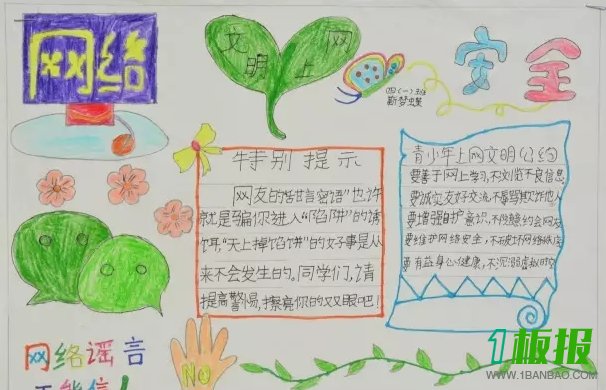 网络
文明上网
安全
四(一)班
靳梦蝶
特别提示
网友的"甜言密语"也许
就是骗你进入"陷阱"的诱
饵,"天上掉馅饼"的好事是从
来不会发生的。同学们,请
提高警惕,擦亮你的双眼吧!
青少年上网文明公约
要善于网上学习,不浏览不良信息.
要诚实友好交流,不辱骂欺诈他人
要增强自护意识,不随意约会网友
要维护网络安全,不破坏网络秩序
要有益身心健康,不沉溺虚拟时空
网络谣言
不能信!
NO
1板报
WWW.1BANBAO.COM